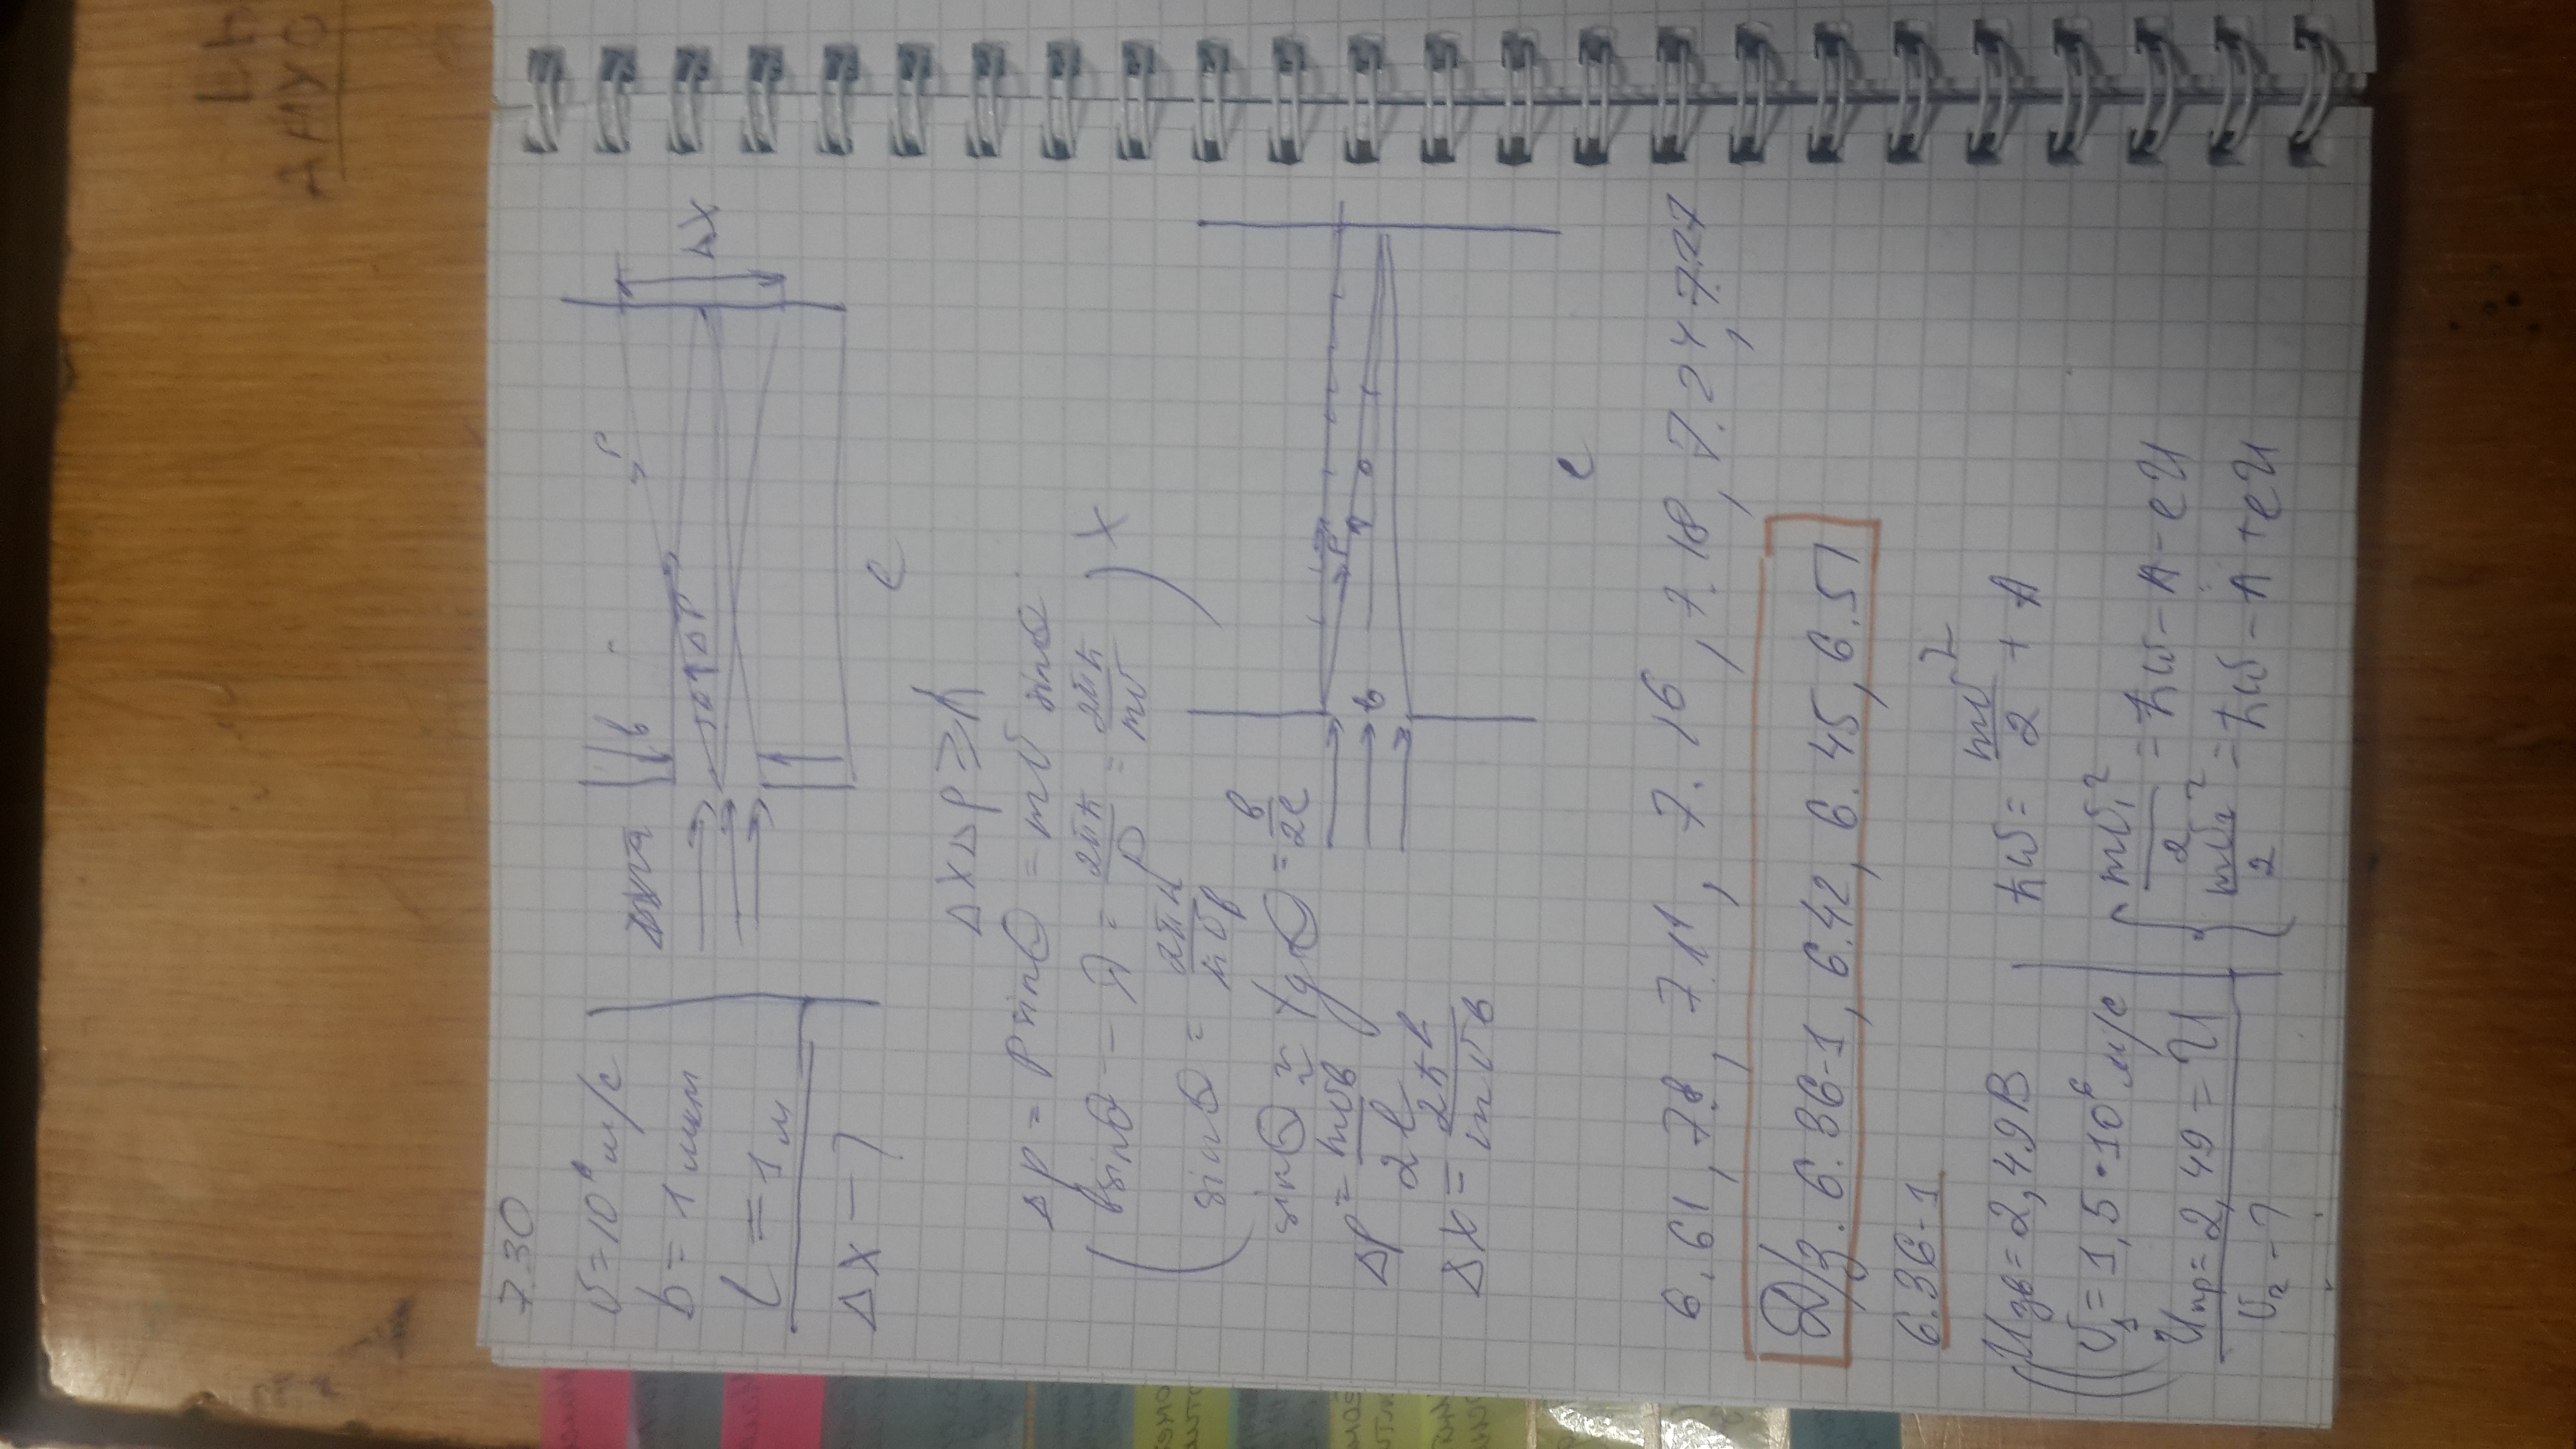 7.30
υ = 10⁶ м/с
b = 1 мкм
l = 1 м
Δx – ?
b
P
ΔP
Δx
l
ΔxΔp ≥ ħ
Δp = p sinθ = mυ sinθ
b sinθ = λ = 2πħ/p = 2πħ/mυ
sinθ = 2πħ/mυb
sinθ ≈ tgθ = b/2l
Δp = mυb/2l
Δx = 2ħl/mυb
b
P
l
6.61, 7.8, 7.11, 7.16, 7.18, 7.24, 7.27
Д/з. 6.36-1, 6.42, 6.45, 6.51
6.36-1
Uзв = 2,49 В
υ₁ = 1,5 · 10⁶ м/с
Uпр = 2,49 = U
υ₂ – ?
ħω = mυ²/2 + A
mυ₁²/2 = ħω – A – eU
mυ₂²/2 = ħω – A + eU